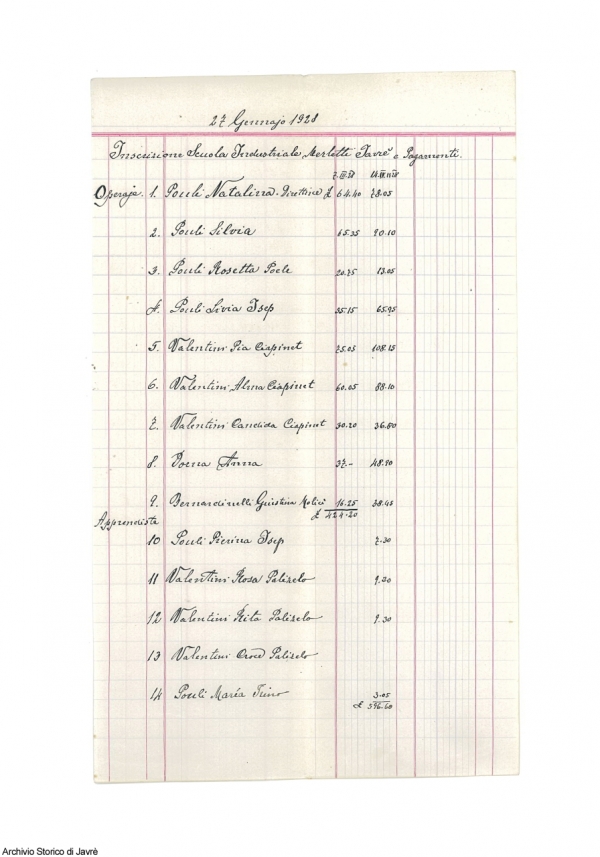 27 Gennajo 1928
Inscrisione Scuola Industriale Merletti Javrè e Pagamenti.
Operaje. 1. Pouli Natalina. Direttrice £ 64.40 78.05
2. Pouli Silvia 65.35 90.10
3. Pouli Rosetta Poele 20.75 13.05
4. Pouli Livia Isep 55.15 65.95
5. Valentini Pia Ciapinet 75.05 108.15
6. Valentini Alma Ciapinet 60.05 88.10
7. Valentini Candida Ciapinet 30.20 36.80
8. Dorna Anna 37.- 48.90
9. Bernardinelli Giustina Molici 16.25 38.45
£ 424.20
Apprendista
10 Pouli Pierina Isep 7.30
11 Valentini Rosa Paliselo 9.30
12 Valentini Rita Paliselo 9.30
13 Valentini Paliselo
14 Pouli Maria Trino 3.05
£ 596.60
Archivio Storico di Javrè